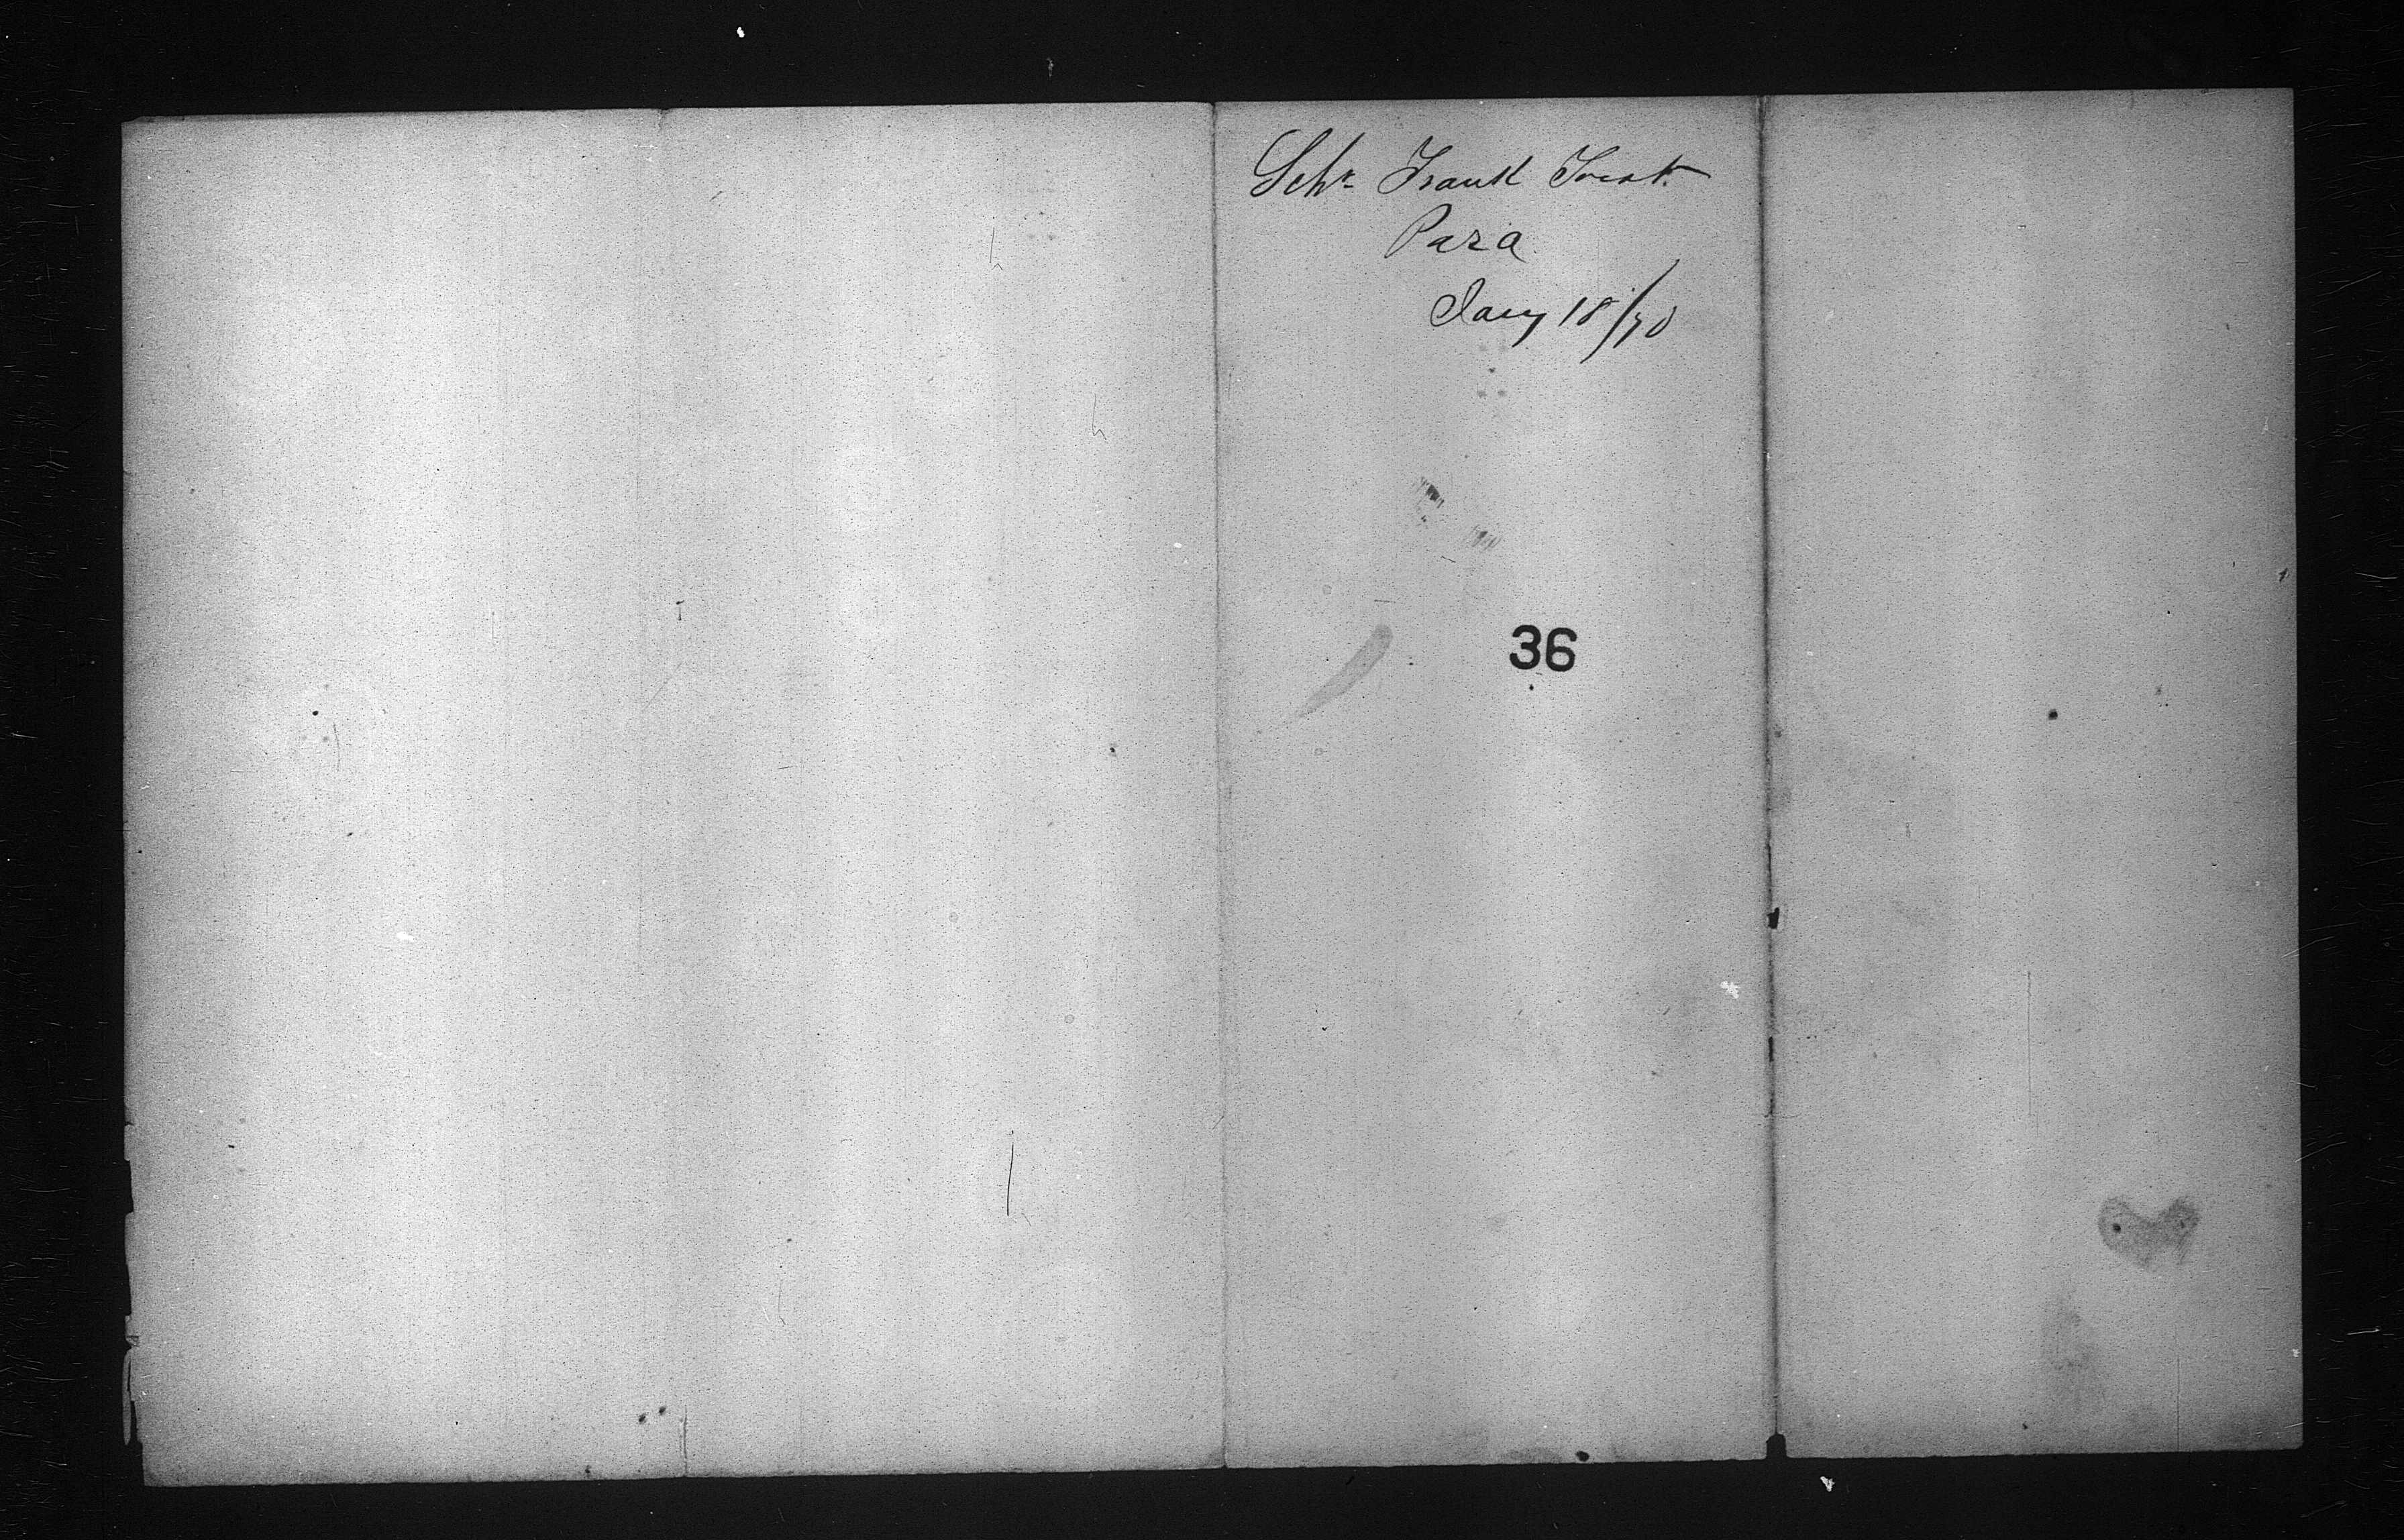 Schr Frank Treat.
Para
Jany 18/70
36